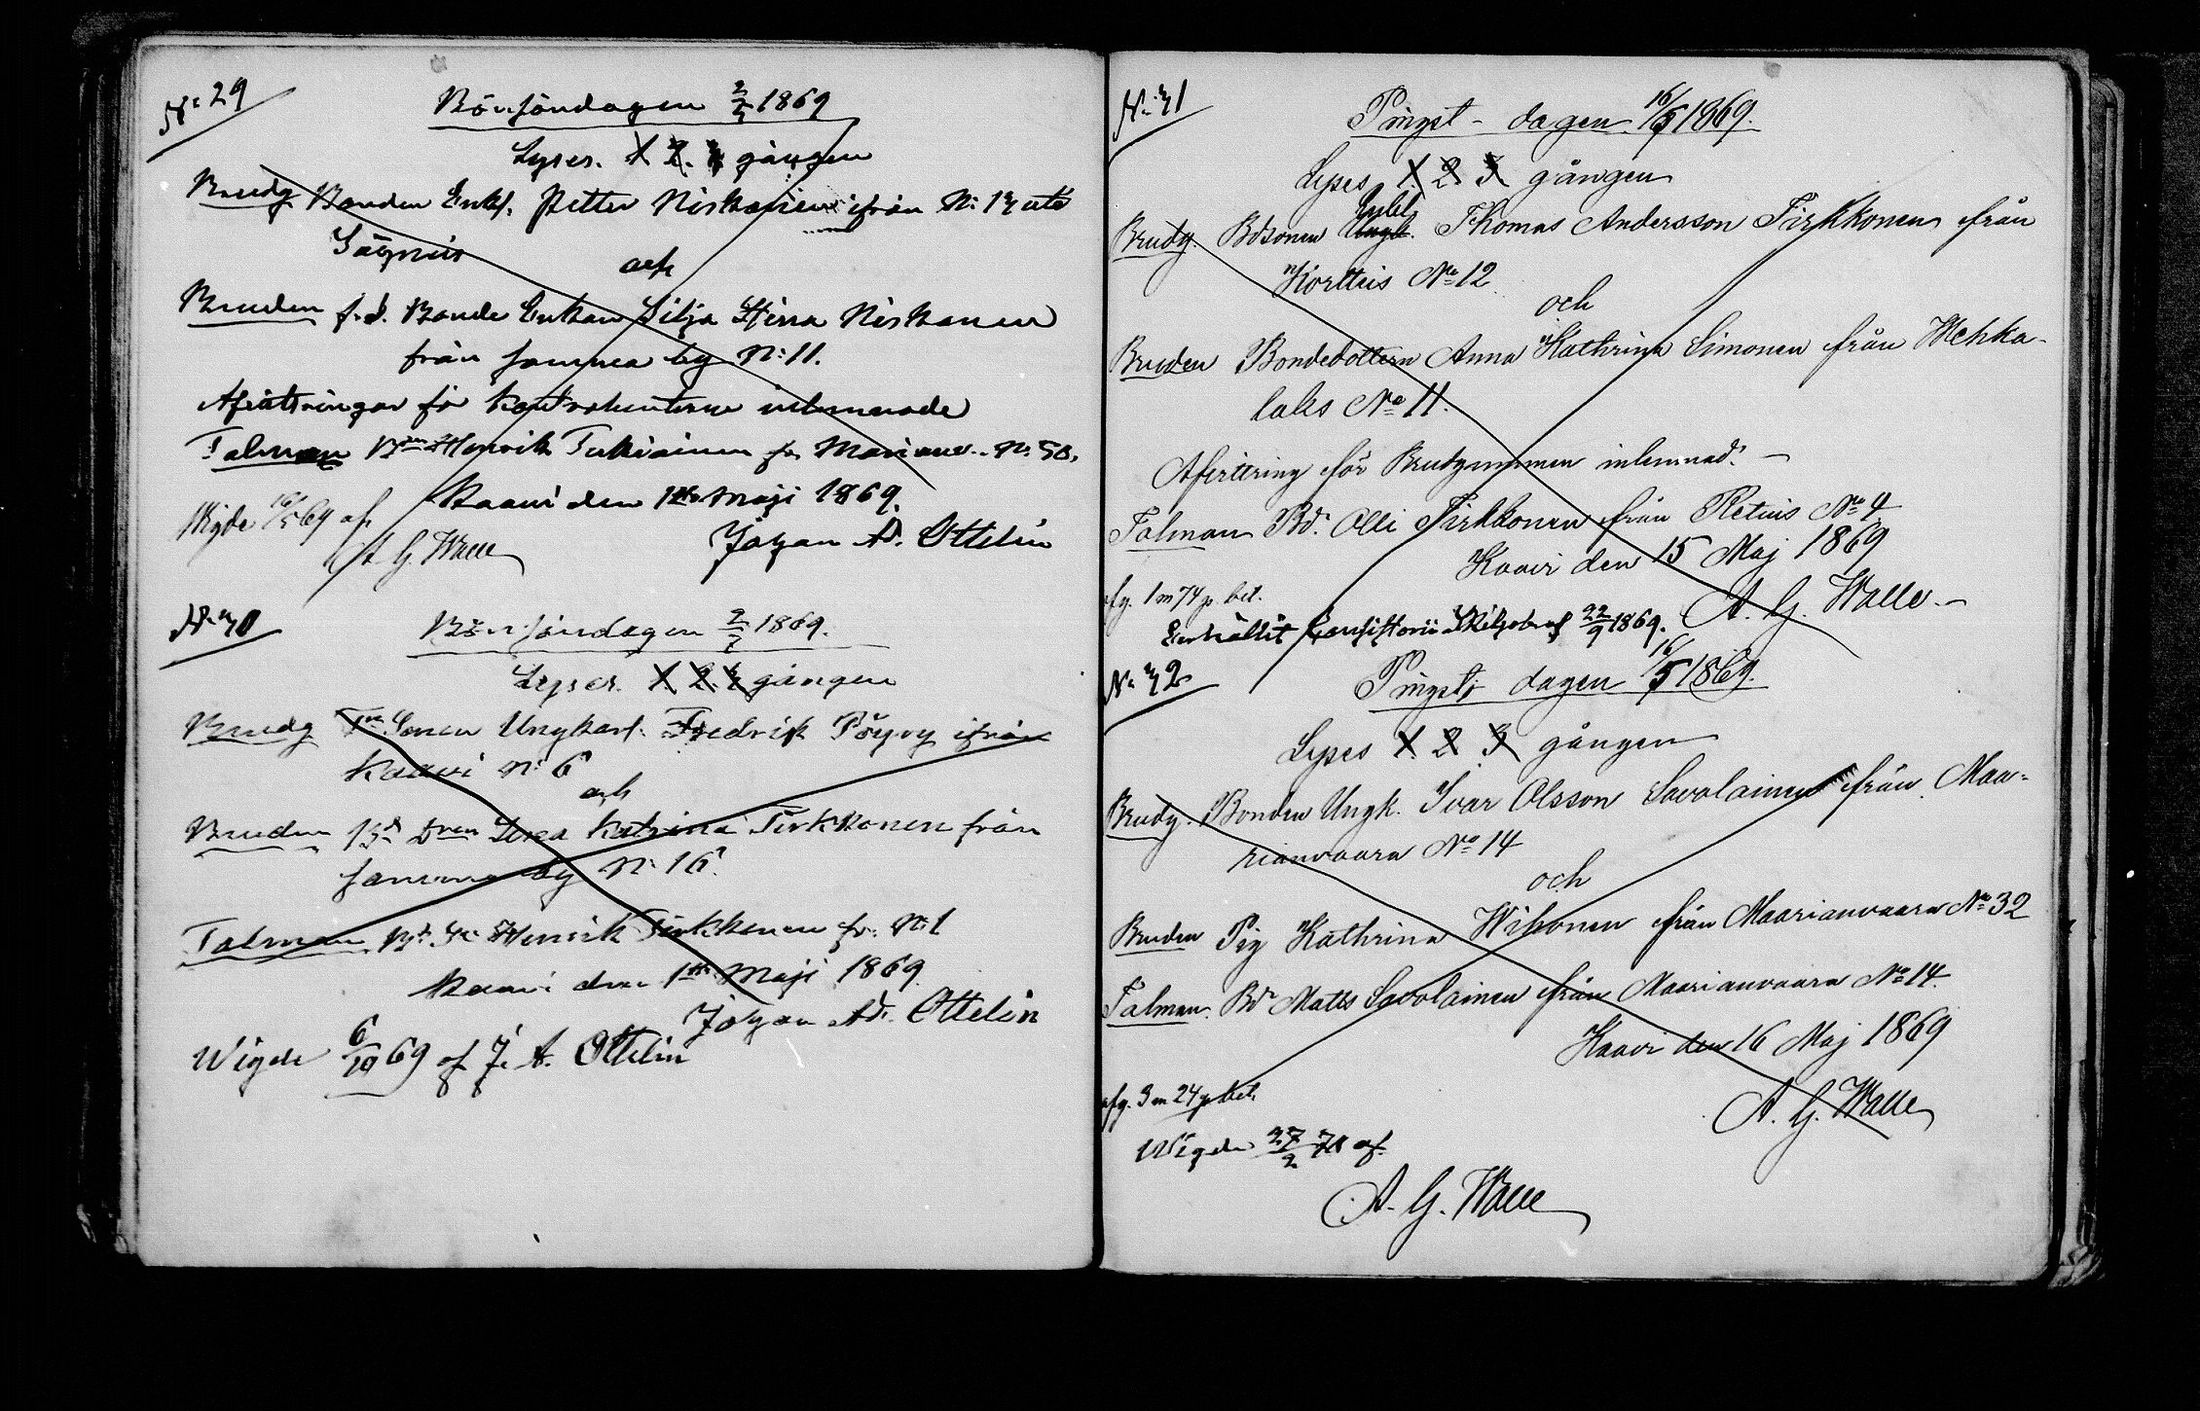 N:o 29
Bönsöndagen 2/5 1869
Lyses. 1 2. 3 gången
Brudg Bonden Enkl. Petter Niskanen ifrån N: 13 uti
Sägnis
och
Bruden f.d. Bonde Enkan Silja Stina Niskanen
från samma by N: 11.
Afvittringar för kontrahenterne inlemnade
Talman Henrik Turkiainen fr. Marianv. N: 50.
Kaavi den 1ste Maji 1869.
Wigde 16/5 69 af
A G. Walle
Johan Ad. Ottelin
N: 30
Bönsöndagen 2/5 1869.
Lyses. 1. 2. 3 gången
Brudg Sonen Ungkarl. Fredrik Pöyry ifrån
Kaavi N: 6
och
Bruden Bd Dren Lovisa Katrina Tirkkonen från
samma by N: 16.
Talman Bd. Henrik Tirkkonen fr. N: 1
Kaavi den 1ste Maji 1869.
Johan Ad. Ottelin
Wigde 6/10 69 af J. A. Ottelin
N: 31
Pingst-dagen 16/5 1869.
Lyses 1. 2. 3 gången
Enkl.
Brudg. Bdsonen Ungk. Thomas Andersson Tirkkonen från
Kortteis No 12
och
Bruden Bondedottern Anna Kathrina Simonen från Mehka-
laks No 11.
Afvittring för Brudgummen inlemnad. —
Talman Bd. Olli Tirkkonen från Retuis No 4
Kaavi den 15 Maj 1869
afg. 1 m 74 p. bet.
A. G. Walle —
Erhållit Consistorii Skiljobref 22/9 1869.
N: 32
Pingst dagen 16/5 1869.
Lyses 1. 2 3 gången
Brudg. Bonden Ungk. Ivar Olsson Savolainen från Maa-
rianvaara No 14
och
Bruden Pig Kathrina Wihonen från Maarianvaara No 32
Talman. Bd Matts Savolainen från Maarianvaara No 14.
Kaavi den 16 Maj 1869
A. G. Walle
afg. 3 m 24 p. bet.
Wigde 27/2 71 af.
A. G. Walle